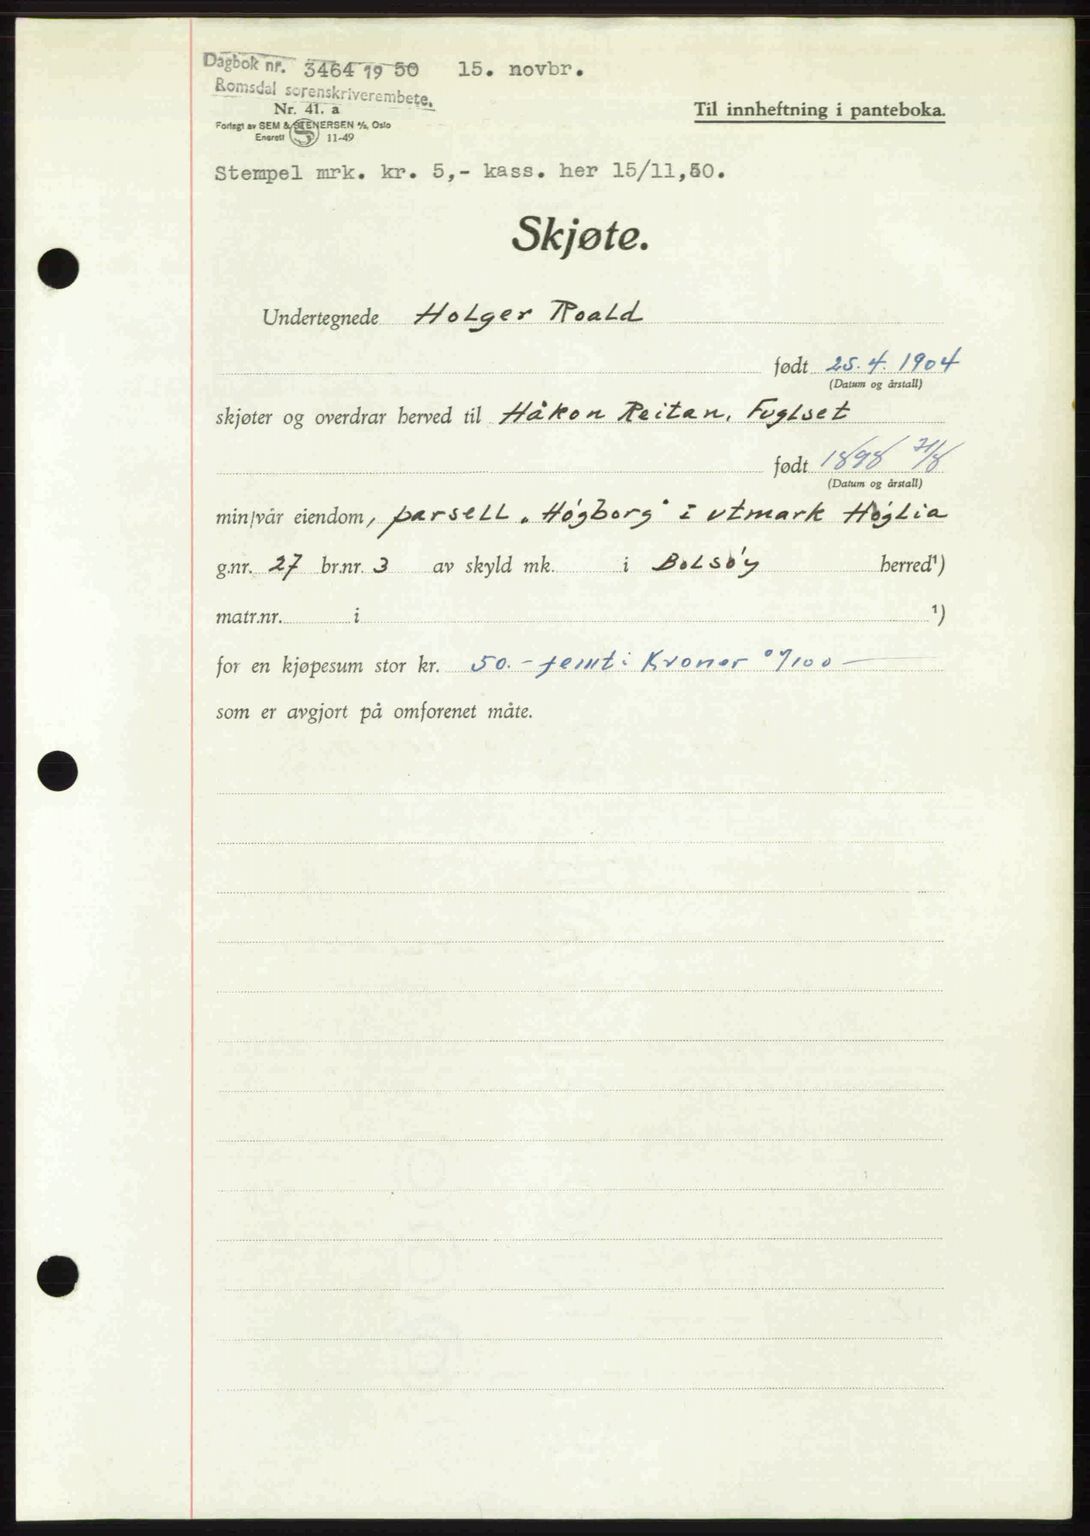 Dagbok nr. 3464 19 50 15. novbr.
Romsdal sorenskriverembete.
Nr. 41. a
Til innheftning i panteboka.
Forlagt av SEM & STENERSEN A/S, Oslo
Enerett 11-49
Stempel mrk. kr. 5,- kass. her 15/11,50.
Skjøte.
Undertegnede Holger Roald
født 25.4.1904
(Datum og årstall)
skjøter og overdrar herved til Håkon Reitan, Fuglset
født 1898
(Datum og årstall)
min/vår eiendom, parsell "Högborg" i utmark Höglia
g.nr. 27 br.nr. 3 av skyld mk. i Bolsöy herred¹)
matr.nr. i ¹)
for en kjøpesum stor kr. 50.- femti Kroner 0/100
som er avgjort på omforenet måte.